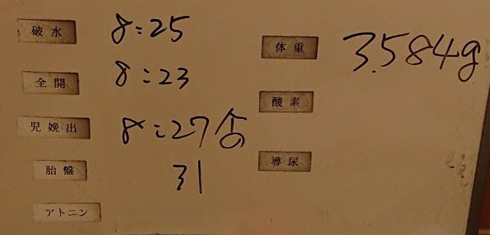 破水 8:25
全開 8:23
児娩出 8:27
胎盤 31
アトニン
体重 3.584g
酸素
導尿